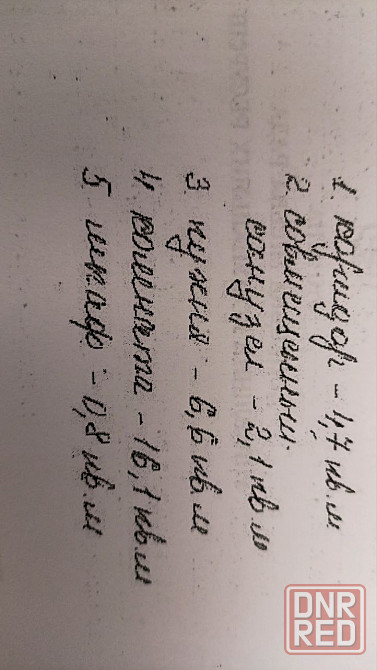 1. коридор - 4,7 кв.м
2 совмещенный
санузел - 2,1 кв м
3 кухня - 6,6 кв м
4. комната - 16,1 кв м
5 шкаф - 0,8 кв м
DNR
RED